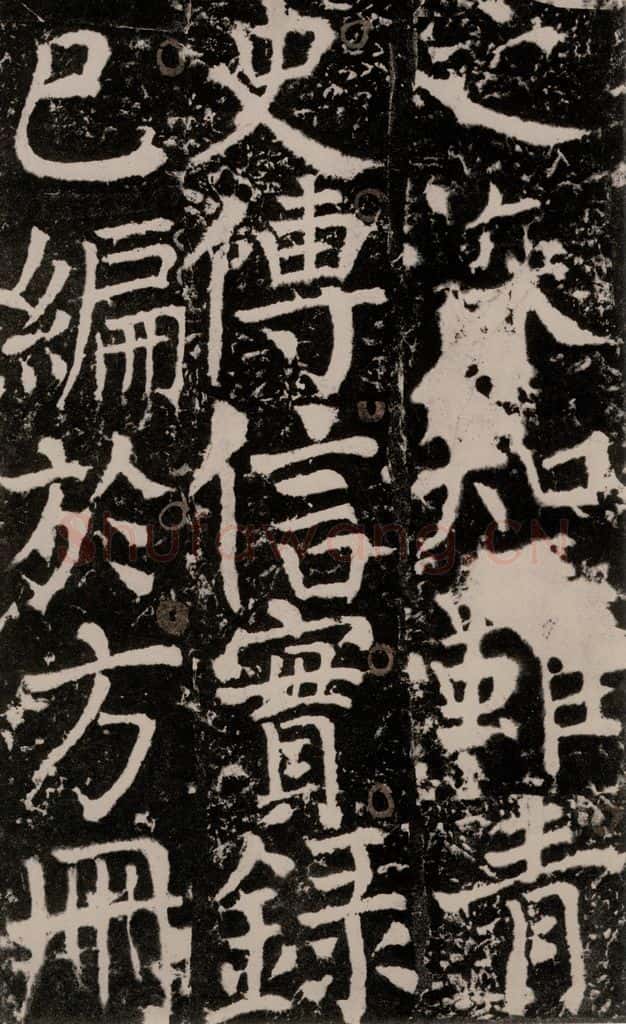 之深知雖青
史傳信實錄
已編於方冊
Shufawang.CN